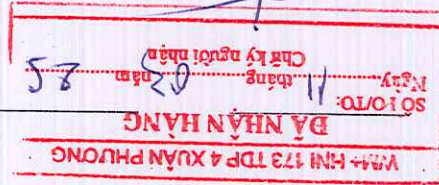 WM+ HNI 173 TDP 4 XUÂN PHƯƠNG
ĐÃ NHẬN HÀNG
SỐ I-O/TO:
Ngày 11 tháng năm
Chữ ký người nhận